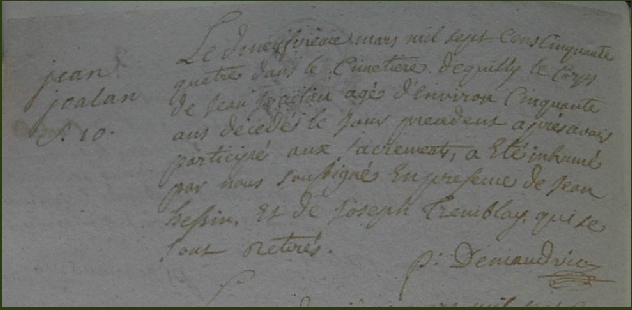 jean
joalan
s. 10.
Le deuxsieme mars mil sept cens Cinquante
quatre dans le Cimetiere d'equilly le Corps
de Jean joalan agé d'environ Cinquante
ans decedé le Jour precedent apres avoir
participé aux Sacrements, a Eté inhumé
par nous soussigné En presence de Jean
hessin. Et de Joseph Tremblay qui se
sont Retirés.
p: Demandvie